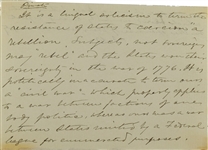 It is a lingual solecism to term the
resistance of States to coercion a
rebellion. Subjects, not sovereigns
may rebel and the States won their
sovereignty in the war of 1776. It is
politically inaccurate to term ours
a "civil war" which properly applies
to a war between factions of one
body politic, whereas ours was a war
between States united by a Federal
league for enumerated purposes.